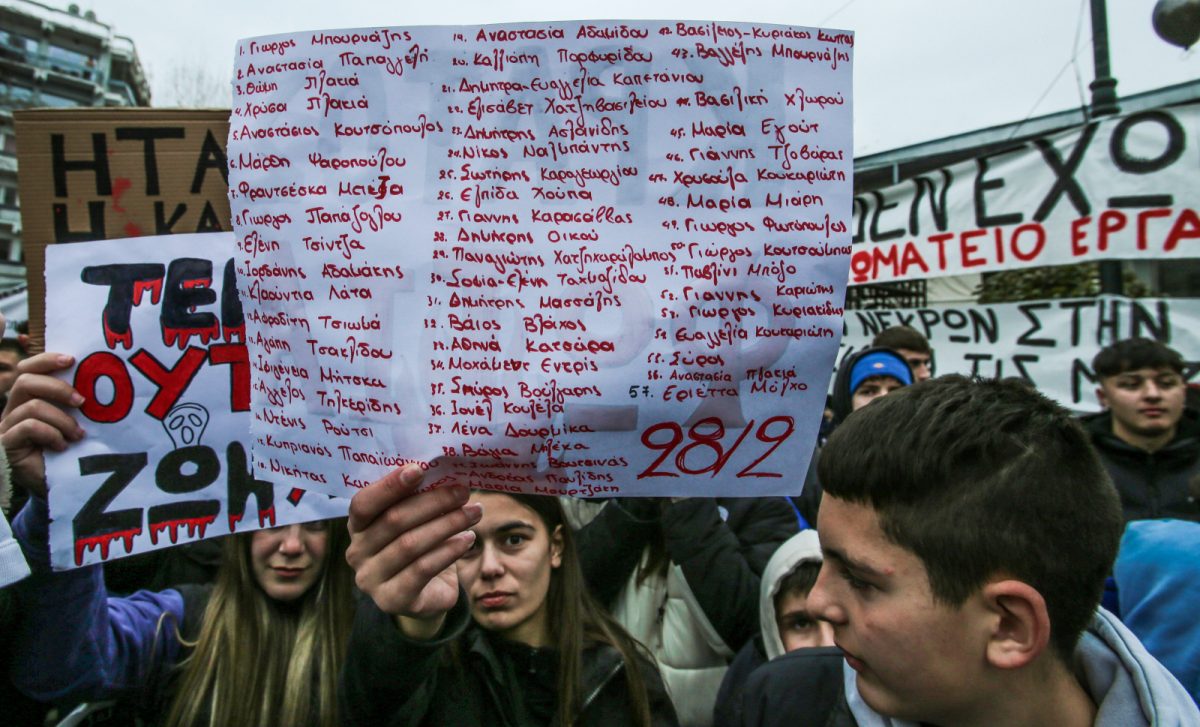 1. Γιώργος Μπουρνάζης
2. Αναστασία Παπαγγελή
3. Θώμη Πλακιά
4. Χρύσα Πλακιά
5. Αναστάσιος Κουτσόπουλος
6. Μάρθη Ψαροπούλου
7. Φραντσέσκα Μπέζα
8. Γιώργος Παπάζογλου
9. Ελένη Τσίντζα
10. Ιορδάνης Αδαμάκης
11. Κλαούντια Λάτα
12. Αφροδίτη Τσιωμά
13. Αγάπη Τσακλίδου
14. Ιφιγένεια Μήτσκα
15. Αγγελος Τηλκερίδης
16. Ντένις Ρούτσι
17. Κυπριανός Παπαϊωάννου
18. Νικήτας
19. Αναστασία Αδαμίδου
20. Καλλιόπη Πορφυρίδου
21. Δήμητρα-Ευαγγελία Καπετάνιου
22. Ελισάβετ Χατζηβασιλείου
23. Δημήτρης Ασλανίδης
24. Νίκος Ναλμπάντης
25. Σωτήρης Καραγεωργίου
26. Ελπίδα Χούπα
27. Γιάννης Καρασάββας
28. Δημήτρης Οικού
29. Παναγιώτης Χατζηχαραλάμπους
30. Σοφία-Ελένη Ταχμαζίδου
31. Δημήτρης Μασσάλης
32. Βάιος Βλάχος
33. Αθηνά Κατσάρα
34. Μοχάμεντ Εντρίς
35. Σπύρος Βούλγαρης
36. Ιονέλ Κουλέλα
37. Λένα Δουρμίκα
38. Βάγια Μπλέκα
39. Ιωάννης Βουτσινάς
Ανδρέας Παυλίδης
Μαρία Μουρτζάκη
42. Βασίλειος-Κυριάκος Κωττας
43. Βαγγέλης Μπουρνάζης
44. Βασιλική Χλωρού
45. Μαρία Εγούτ
46. Γιάννης Τζοβάρας
47. Χρυσούλα Κουκαριώτη
48. Μαρία Μιάρη
49. Γιώργος Φωτόπουλος
50. Γιώργος Κουτσούμπας
51. Παβλίνι Μπόζο
52. Γιάννης Καριώτης
53. Γιώργος Κυριακίδης
54. Ευαγγελία Κουκαριώτη
55. Σύρος
56. Αναστασία Πλακιά
57. Εριέττα Μόλχο
28/2
ΗΤΑ
Η ΚΑ
ΤΕΜ
ΟΥΤ
ΖΩΗ
ΔΕΝ ΕΧΩ
ΣΩΜΑΤΕΙΟ ΕΡΓΑ
ΝΕΚΡΩΝ ΣΤΗΝ
ΤΙΣ Μ